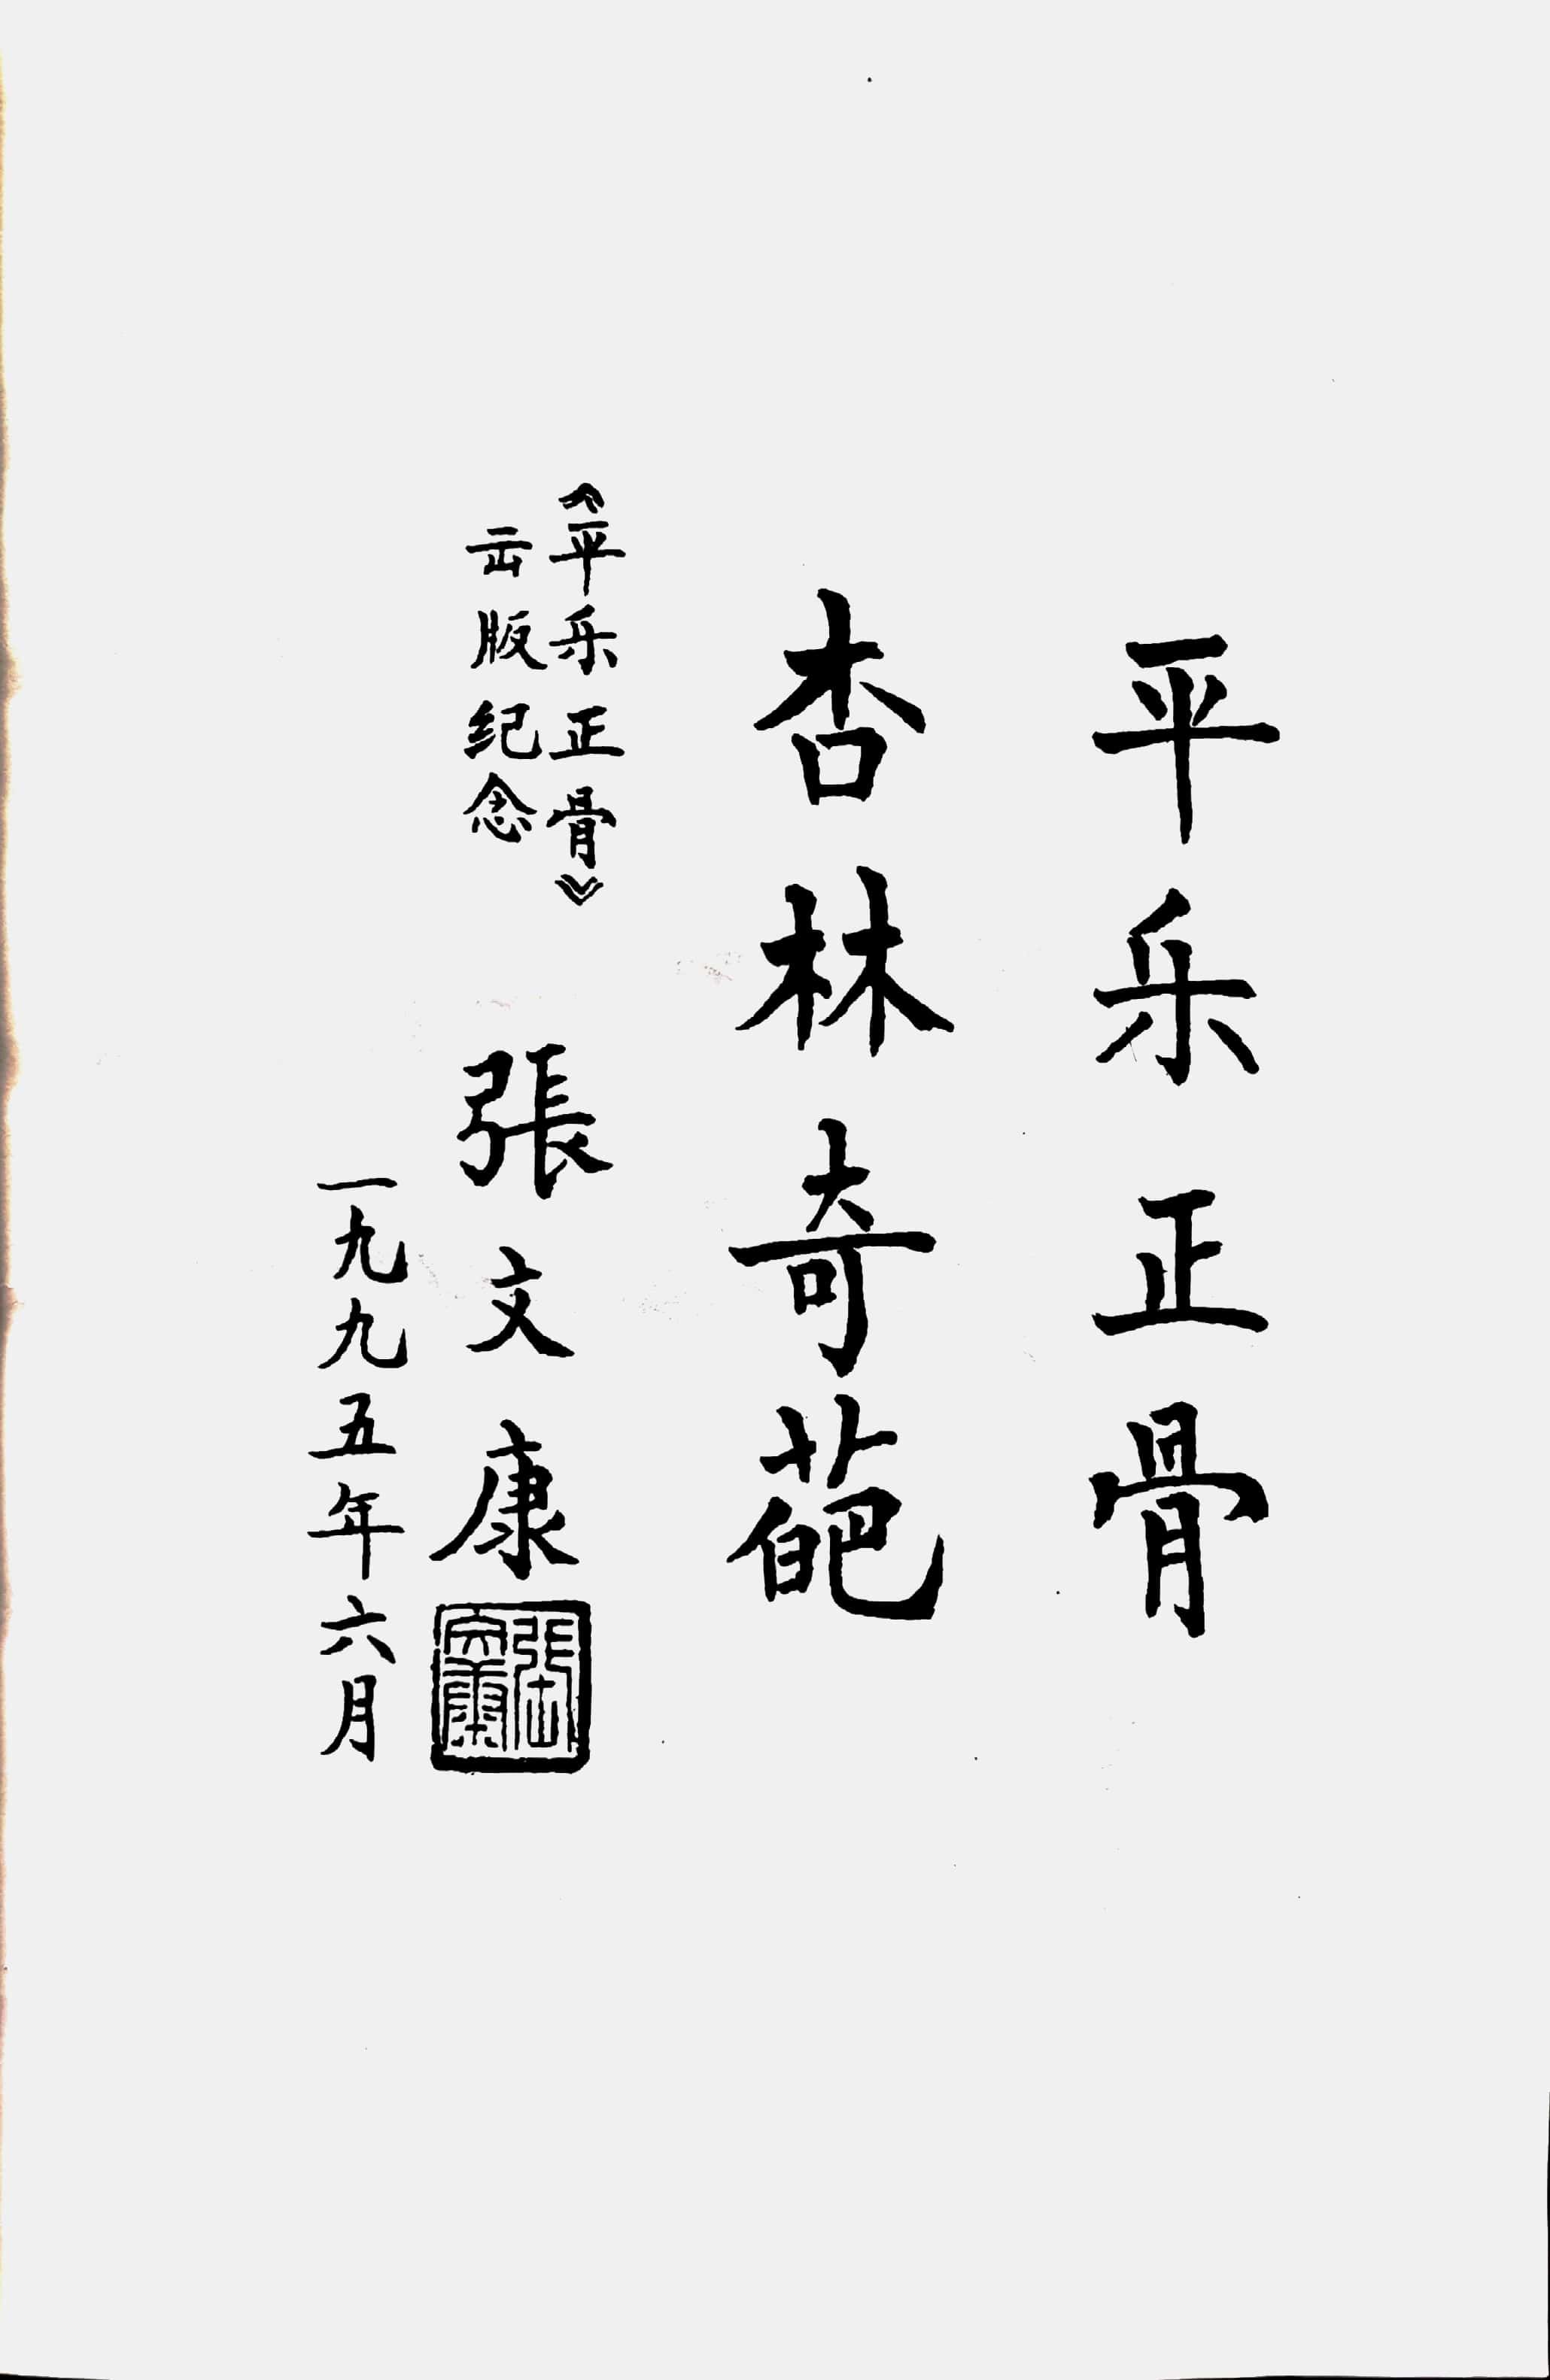 平乐正骨
杏林奇葩
《平乐正骨》
出版纪念
張文康
一九九五年六月